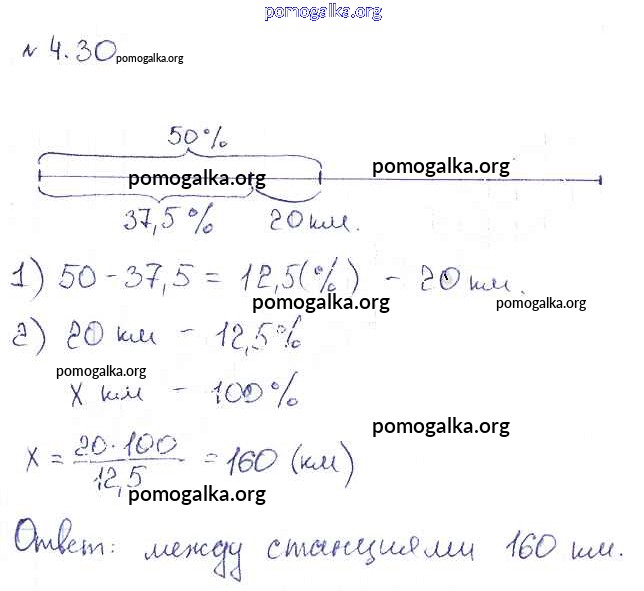 pomogalka.org
№ 4.30 pomogalka.org
50%
pomogalka.org
pomogalka.org
37,5% 20 км.
1) 50 - 37,5 = 12,5(%) - 20 км.
pomogalka.org
pomogalka.org
2) 20 км - 12,5%
pomogalka.org
x км - 100%
pomogalka.org
x = 20·100/12,5 = 160 (км)
pomogalka.org
Ответ: между станциями 160 км.